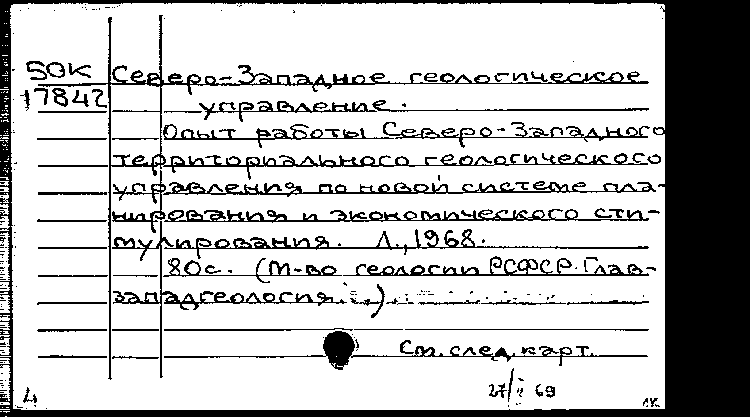 50К Северо-Западное геологическое
17842 управление.
Опыт работы Северо-Западного
территориального геологического
управления по новой системе пла-
нирования и экономического сти-
мулирования. Л., 1968.
80с. (М-во геологии РСФСР. Глав-
западгеология...).
См. след. карт.
4 27/I 69